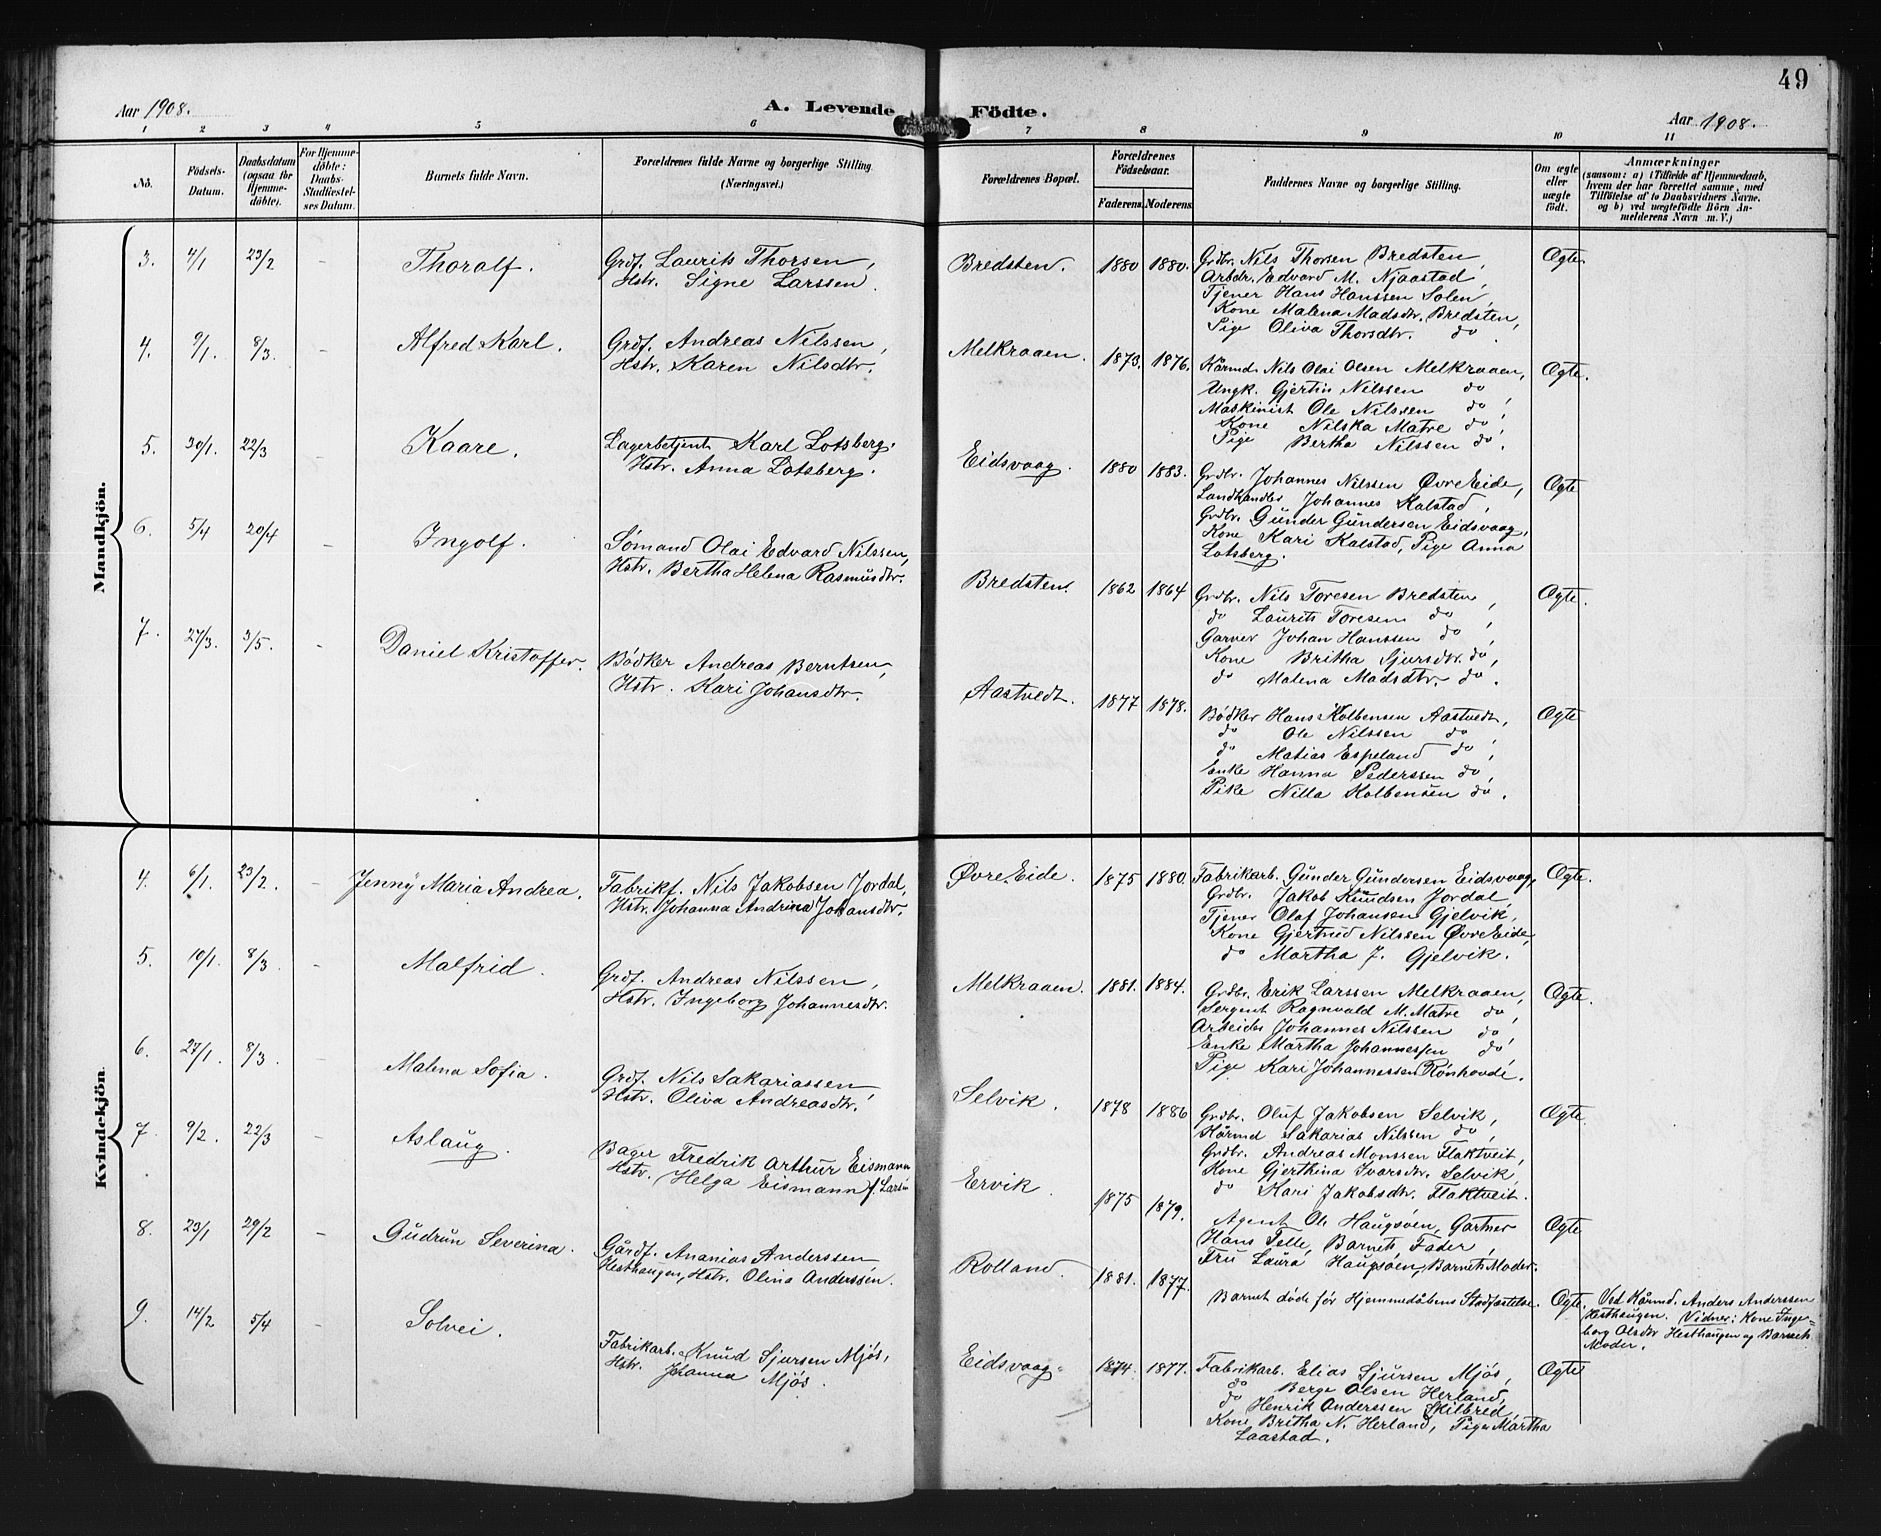 49
Aar 1908.
A. Levende Födte.
Aar 1908.
1 2 3 4 5 6 7 8 9 10 11
No.
Födsels-Datum.
Daabsdatum (ogsaa for Hjemme-döbte).
For Hjemme-döbte: Daabs-Stadfæstel-ses Datum.
Barnets fulde Navn.
Forældrenes fulde Navne og borgerlige Stilling.
(Næringsvei.)
Forældrenes Bopæl.
Forældrenes Födselsaar.
Faderens. Moderens.
Faddernes Navne og borgerlige Stilling.
Om ægte eller uægte födt.
Anmærkninger
(saasom: a) i Tilfælde af Hjemmedaab,
hvem der har forrettet samme, med
Tilföielse af to Daabsvidners Navne.
og b) ved uægtefödte Börn An-
melderens Navn m. V.)
Mandkjön.
3. 4/1 23/2 - Thoralf. Grdf. Laurits Thorsen, Bredsten. 1880 1880. Grdbr. Nils Thorsen Bredsten, Ægte.
Hstr. Signe Larssen. Arbdr. Edvard M. Njaastad,
Tjener Hans Hanssen Solen,
Kone Malena Madsdtr. Bredsten,
Pige Oliva Thorsdtr. do.
4. 9/1. 8/3. - Alfred Karl. Grdf. Andreas Nilssen, Melkraaen. 1873. 1876. Kårmd. Nils Olai Olsen Melkraaen, Ægte.
Hstr. Karen Nilsdtr. Ungk. Gjertin Nilssen do,
Maskinist Ole Nilssen do,
Kone Nilska Matre do,
Pige Bertha Nilssen do.
5. 30/1. 22/3 Kaare. Lagerbetjent Karl Lotsberg. Eidsvaag. 1880 1883. Grdbr. Johannes Nilssen Øvre Eide, Ægte
Hstr. Anna Lotsberg. Landhandler Johannes Kalstad,
Grdbr. Gunder Gundersen Eidsvaag,
Kone Kari Kalstad, Pige Anna
Lotsberg.
6. 5/4 20/4 - Ingolf. Sømand Olai Edvard Nilssen, Bredsten. 1862 1864 Grdbr. Nils Toresen Bredsten, Ægte.
Hstr. Bertha Helena Rasmusdtr. do Laurits Toresen do,
Garver Johan Hanssen do,
Kone Britha Sjursdtr. do,
do Malena Madsdtr. do.
7. 27/3. 3/5. - Daniel Kristoffer. Bødker Andreas Berntsen, Aastvedt. 1877 1878. Bødker Hans Kolbensen Aastvedt, Ægte
Hstr. Kari Johansdtr. do Ole Nilssen do,
do Matias Espeland do,
Enke Hanna Pederssen do,
Pike Nilla Kolbensen do.
Kvindekjön.
4. 6/1. 23/2. - Jenny Maria Andrea. Fabrikf. Nils Jakobsen Jordal, Øvre Eide. 1875 1880. Fabrikarb. Gunder Gundersen Eidsvaag, Ægte.
Hstr. Johanna Andrina Johansdtr. Grdbr. Jakob Knudsen Jordal,
Tjener Olaf Johansen Gjelvik,
Kone Gjertrud Nilssen Øvre Eide,
do Martha J. Gjelvik.
5. 10/1. 8/3 - Malfrid. Grdf. Andreas Nilssen, Melkraaen. 1881. 1884. Grdbr. Erik Larssen Melkraaen, Ægte.
Hstr. Ingeborg Johannesdtr. Sergent Ragnvald M. Matre do,
Arbeider Johannes Nilssen do,
Enke Martha Johannessen do,
Pige Kari Johannessen Rønhovde.
6. 27/1. 8/3 - Malena Sofia. Grdf. Nils Sakariassen, Selvik. 1878 1886 Grdbr. Oluf Jakobsen Selvik, Ægte
Hstr. Oliva Andreasdtr. Kårmd Sakarias Nilssen do,
Grdbr. Andreas Monssen Flaktveit,
Kone Gjerthina Ivarsdtr. Selvik,
do Kari Jakobsdtr. Flaktveit.
7. 9/2. 22/3 - Aslaug. Bager Fredrik Arthur Eismann Ervik. 1875 1879. Agent Ole Haugsøen, Gartner Ægte
Hstr. Helga Eismann f. Larsen Hans Telle, Barnets Fader,
Fru Laura Haugsøen, Barnets Moder.
8. 23/1 29/2 - Gudrun Severina. Gårdf. Ananias Anderssen Rolland. 1881. 1877. Barnet døde før Hjemmedåbens Stadfæstelse. Ægte. Ved Kårmd. Anders Anderssen
Hesthaugen, Hstr. Olina Anderssen. Hesthaugen. Vidner: Kone Inge=
borg Olsdtr Hesthaugen og Barnets
Moder.
9. 14/2 5/4 - Solvei. Fabrikarb. Knud Sjursen Mjøs, Eidsvaag. 1874. 1877. Fabrikarb. Elias Sjursen Mjøs, Ægte
Hstr. Johanna Mjøs. do Berge Olsen Herland,
do Henrik Anderssen Skilbred,
Kone Britha N. Herland, Pige Martha
Laastad.